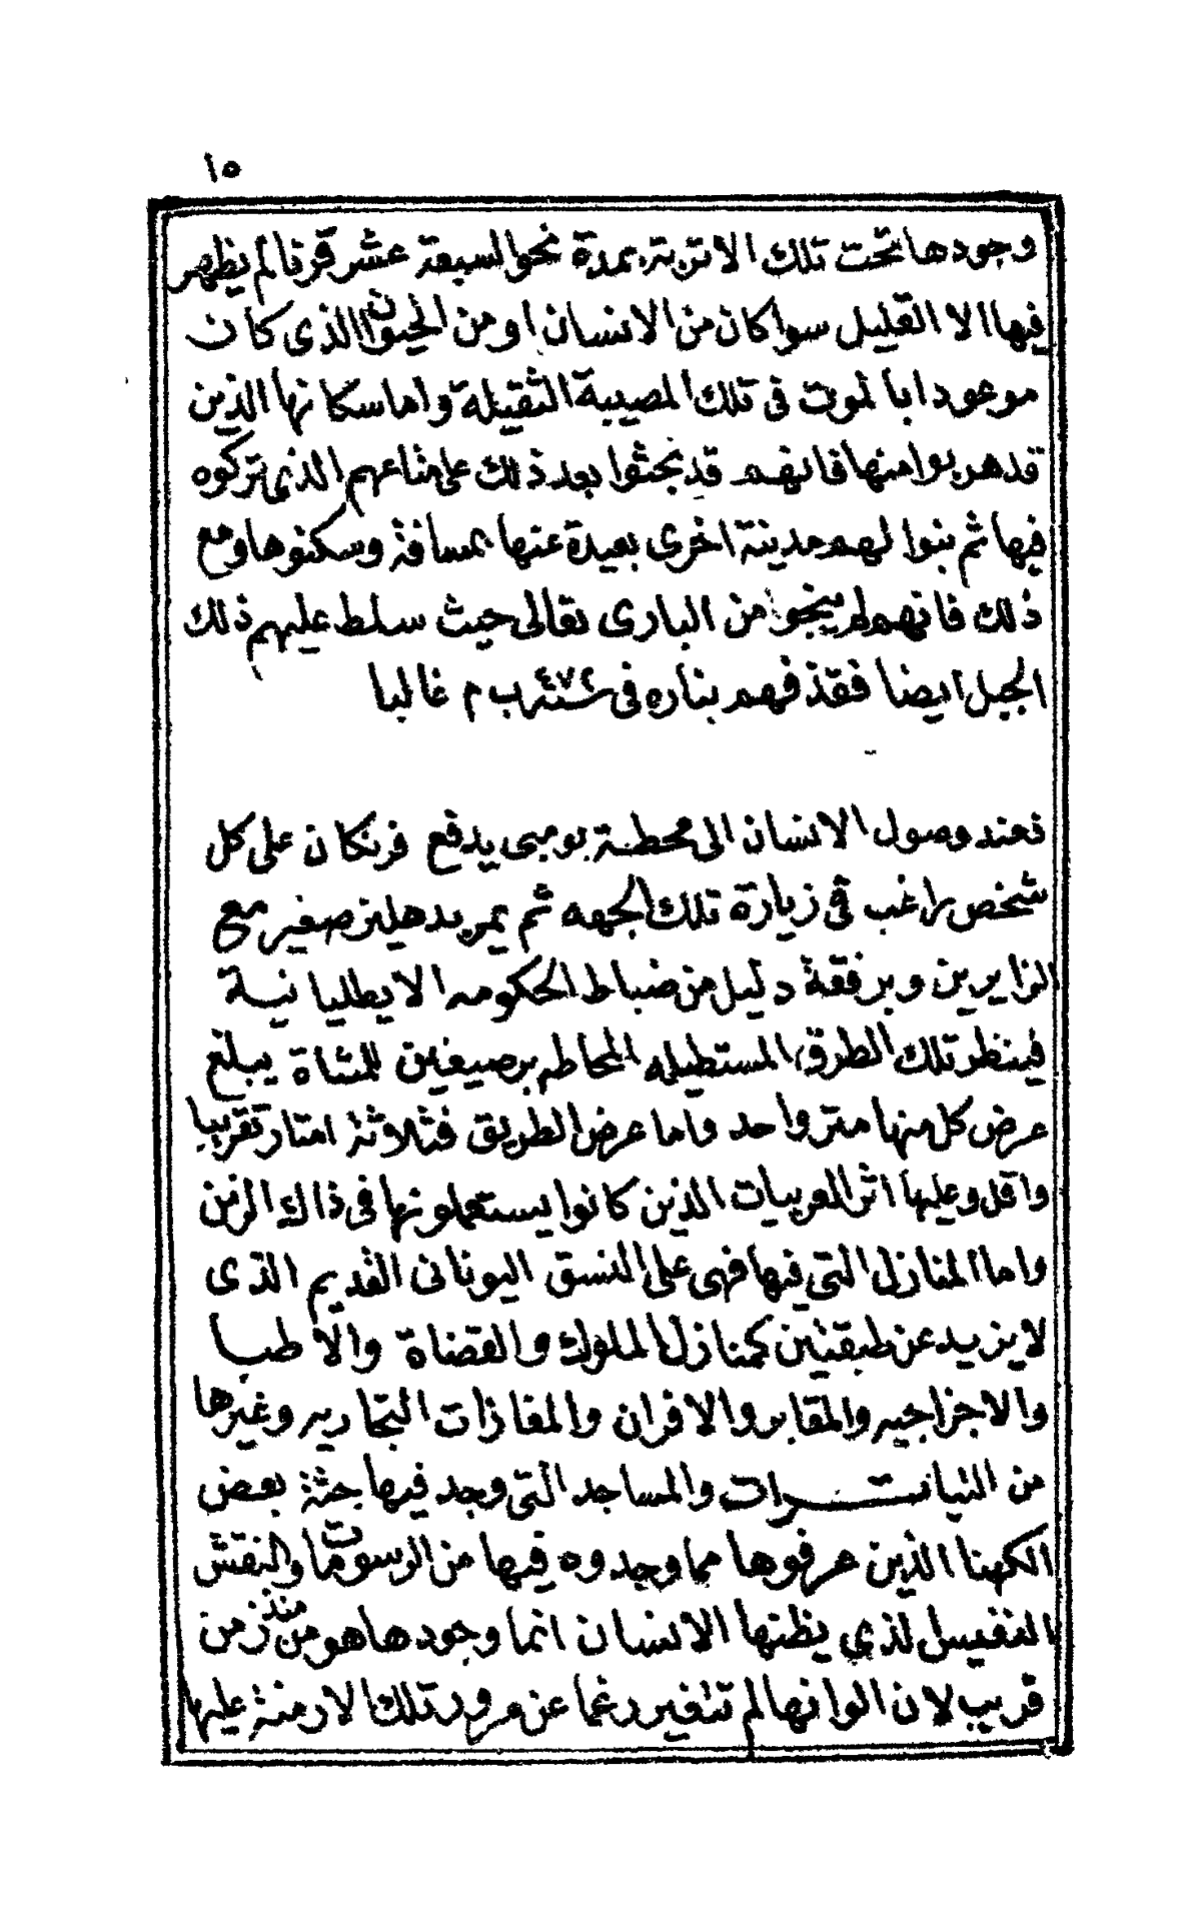 ١٥
وجودها تحت تلك الاتربة بمدة نحو السبعة عشر قرنا لم يظهر
فيها الا القليل سوا كان من الانسان او من الحيوان الذى كان
موعودا بالموت فى تلك المصيبة الثقيلة واما سكانها الذين
قد هربوا منها فانهم قد بحثوا بعد ذلك على متاعهم الذى تركوه
فيها ثم بنوا لهم مدينة اخرى بعيدة عنها بمسافة وسكنوها ومع
ذلك فانهم لم ينجوا من البارى تعالى حيث سلط عليهم ذلك
الجبل ايضا فقذفهم بناره فى سنة ٤٧٤ ب م غالبا
فعند وصول الانسان الى محطة بومبى يدفع فرنكان على كل
شخص راغب فى زيارة تلك الجهه ثم يمر بدهليز صغير مع
الزايرين وبرفقة دليل من ضباط الحكومه الايطليانية
فينظر تلك الطرق المستطيله المحاطه برصيفين للمشاة يبلغ
عرض كل منها متر واحد واما عرض الطريق فثلاثة امتار تقريبا
واقل وعليها اثر العربيات الذين كانوا يستعملونها فى ذاك الزمن
واما المنازل التى فيها فهى على النسق اليونانى القديم الذى
لا يزيد عن طبقتين كمنازل الملوك والقضاة والاطبا
والاجزاجيه والمقابر والافران والمغازات التجاريه وغيرها
من التياترات والمساجد التى وجد فيها جثة بعض
الكهنا الذين عرفوها مما وجدوه فيها من الرسومات والنقش
النفيس لذي يظنها الانسان انما وجودها هو من منذ زمن
قريب لان الوانها لم تتغير رغما عن مرور تلك الازمنة عليها